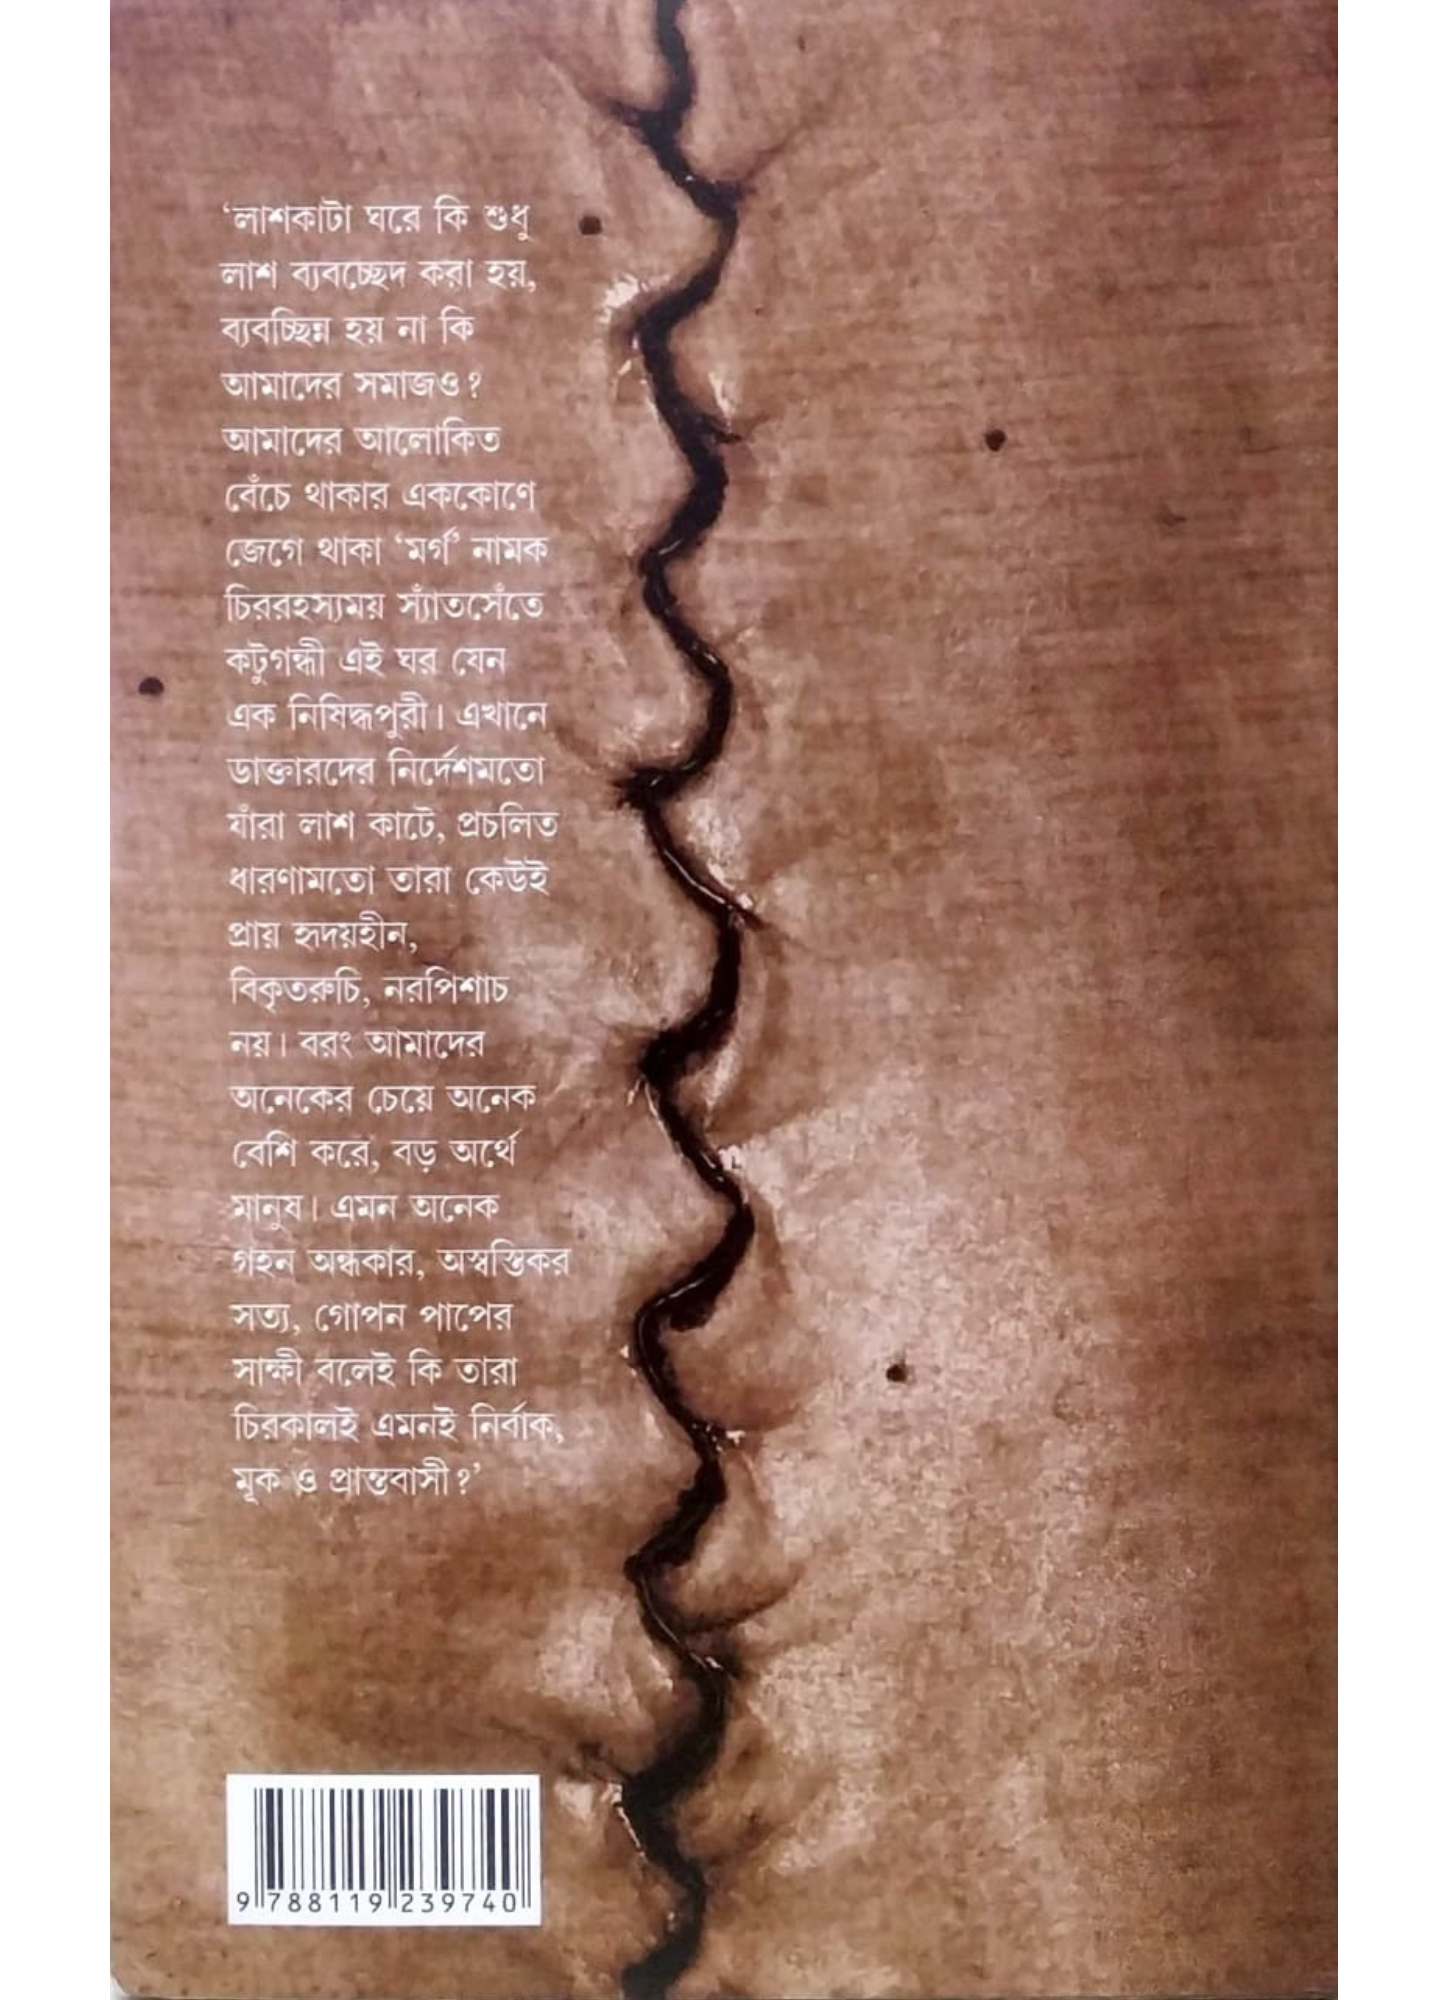 ‘লাশকাটা ঘরে কি শুধু
লাশ ব্যবচ্ছেদ করা হয়,
ব্যবচ্ছিন্ন হয় না কি
আমাদের সমাজও?
আমাদের আলোকিত
বেঁচে থাকার এককোণে
জেগে থাকা ‘মর্গ’ নামক
চিররহস্যময় স্যাঁতসেঁতে
কটুগন্ধী এই ঘর যেন
এক নিষিদ্ধপুরী। এখানে
ডাক্তারদের নির্দেশমতো
যাঁরা লাশ কাটে, প্রচলিত
ধারণামতো তারা কেউই
প্রায় হৃদয়হীন,
বিকৃতরুচি, নরপিশাচ
নয়। বরং আমাদের
অনেকের চেয়ে অনেক
বেশি করে, বড় অর্থে
মানুষ। এমন অনেক
গহন অন্ধকার, অস্বস্তিকর
সত্য, গোপন পাপের
সাক্ষী বলেই কি তারা
চিরকালই এমনই নির্বাক,
মূক ও প্রান্তবাসী?’
9 788119 239740